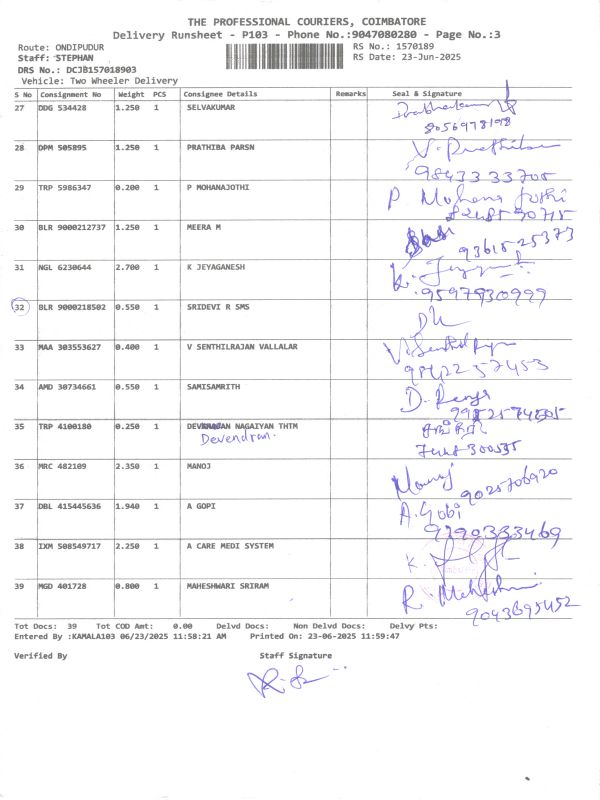 THE PROFESSIONAL COURIERS, COIMBATORE
Delivery Runsheet - P103 - Phone No.:9047080280 - Page No.:3
Route: ONDIPUDUR RS No.: 1570189
Staff: STEPHAN RS Date: 23-Jun-2025
DRS No.: DCJB157018903
Vehicle: Two Wheeler Delivery
S No Consignment No Weight PCS Consignee Details Remarks Seal & Signature
27 DDG 534428 1.250 1 SELVAKUMAR
8056978198
28 DPM 505895 1.250 1 PRATHIBA PARSN V. Prathiba
9843333705
29 TRP 5986347 0.200 1 P MOHANAJOTHI P Mohana Jothi
30 BLR 9000212737 1.250 1 MEERA M
9361525373
31 NGL 6230644 2.700 1 K JEYAGANESH
9597930999
32 BLR 9000218502 0.550 1 SRIDEVI R SMS
33 MAA 303553627 0.400 1 V SENTHILRAJAN VALLALAR
9842257453
34 AMD 30734661 0.550 1 SAMISAMRITH
35 TRP 4100180 0.250 1 NAGAIYAN THTM
Devendran.
36 MRC 482109 2.350 1 MANOJ Manoj
9025706920
37 DBL 415445636 1.940 1 A GOPI A. Gobi
38 IXM 508549717 2.250 1 A CARE MEDI SYSTEM
39 MGD 401728 0.800 1 MAHESHWARI SRIRAM
9043695452
Tot Docs: 39 Tot COD Amt: 0.00 Delvd Docs: Non Delvd Docs: Delvy Pts:
Entered By :KAMALA103 06/23/2025 11:58:21 AM Printed On: 23-06-2025 11:59:47
Verified By Staff Signature